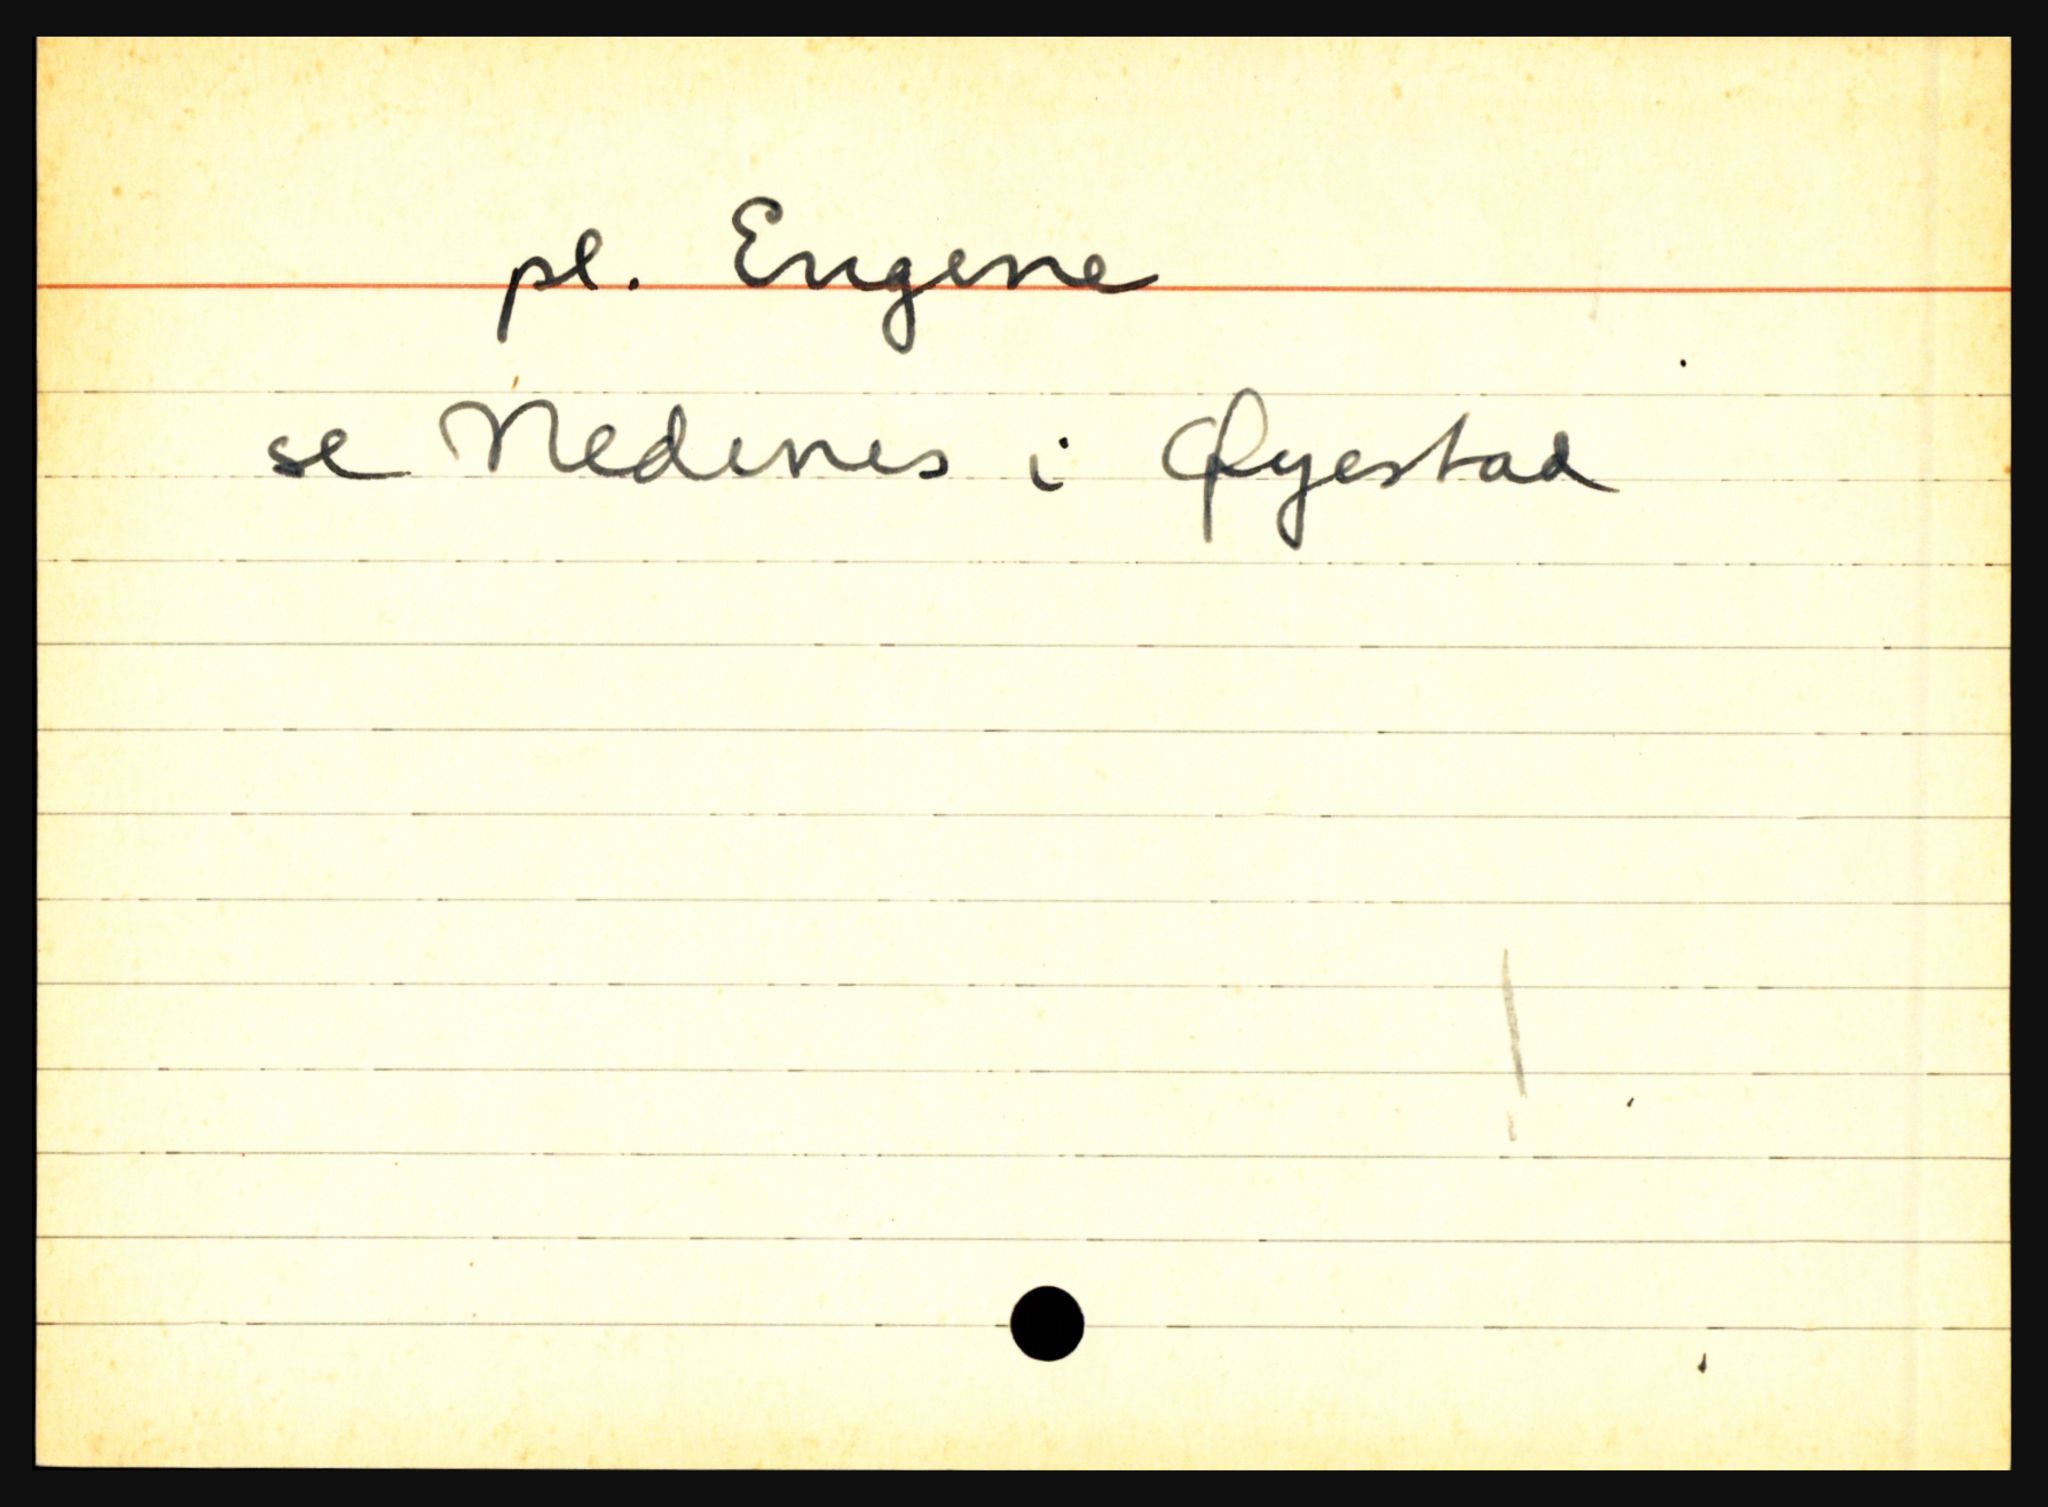 pl. Engene
se Nedenes i Øyestad